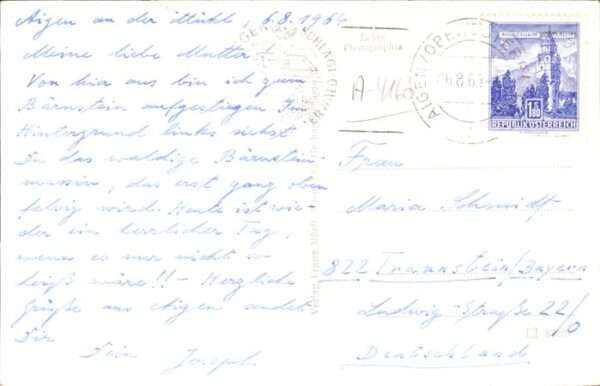 Aigen an der Mühl, 6.8.1964
Meine liebe Mutter!
Von hier aus bin ich zum
Bärnstein aufgestiegen. Im
Hintergrund links siehst
Du das waldige Bärnstein-
massiv, das erst ganz oben
felsig wird. Heute ist wie-
der ein herrlicher Tag,
wenn es nur nicht so
heiß wäre!! - Herzliche
Grüße aus Aigen sendet
Dir
Dein Joseph
A-416
AIGEN
SCHLÄGL
6.8.6
1.80
REPUBLIK ÖSTERREICH
Frau
Maria Schmidt
822 Traunstein/Bayern
Ludwig-Straße 22/0
Deutschland